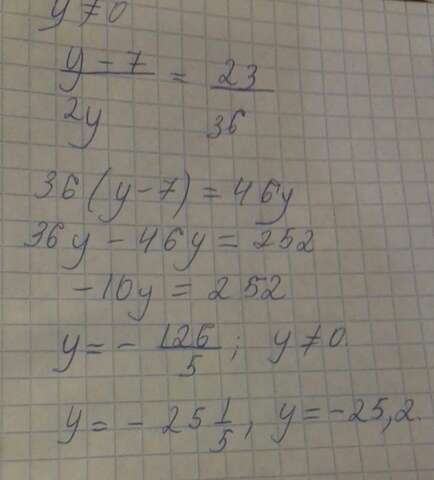 y ≠ 0
y - 7 / 2y = 23 / 36
36(y - 7) = 46y
36y - 46y = 252
-10y = 252
y = - 126/5; y ≠ 0.
y = - 25 1/5, y = -25,2.